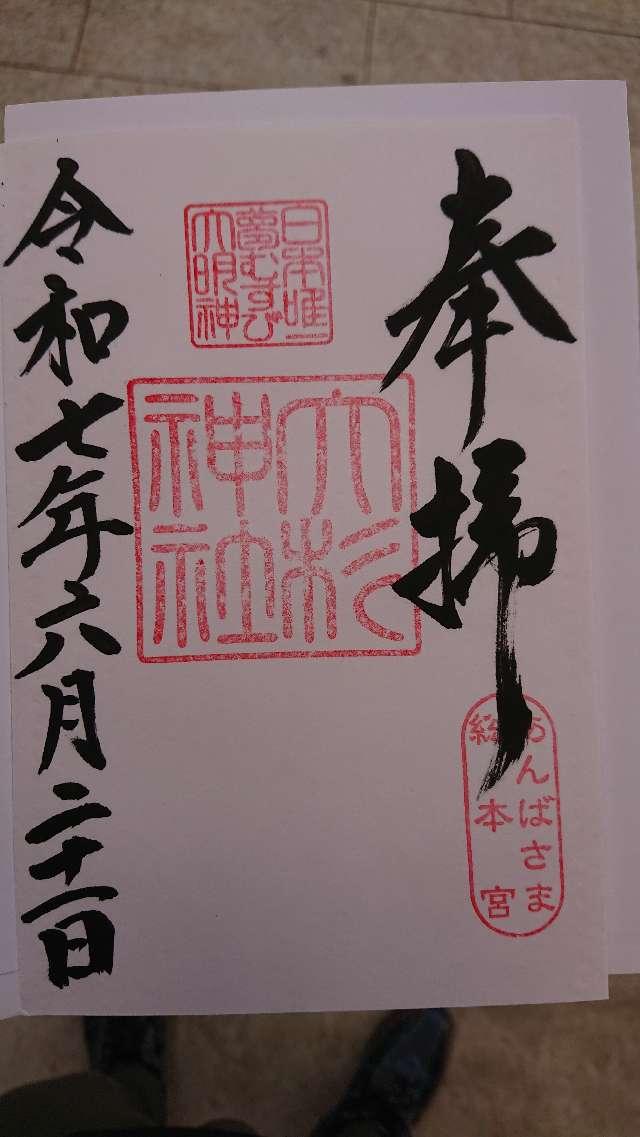 奉拝
あんばさま
総本宮
日本唯一
夢むすび
大明神
大杉
神社
令和七年六月二十一日